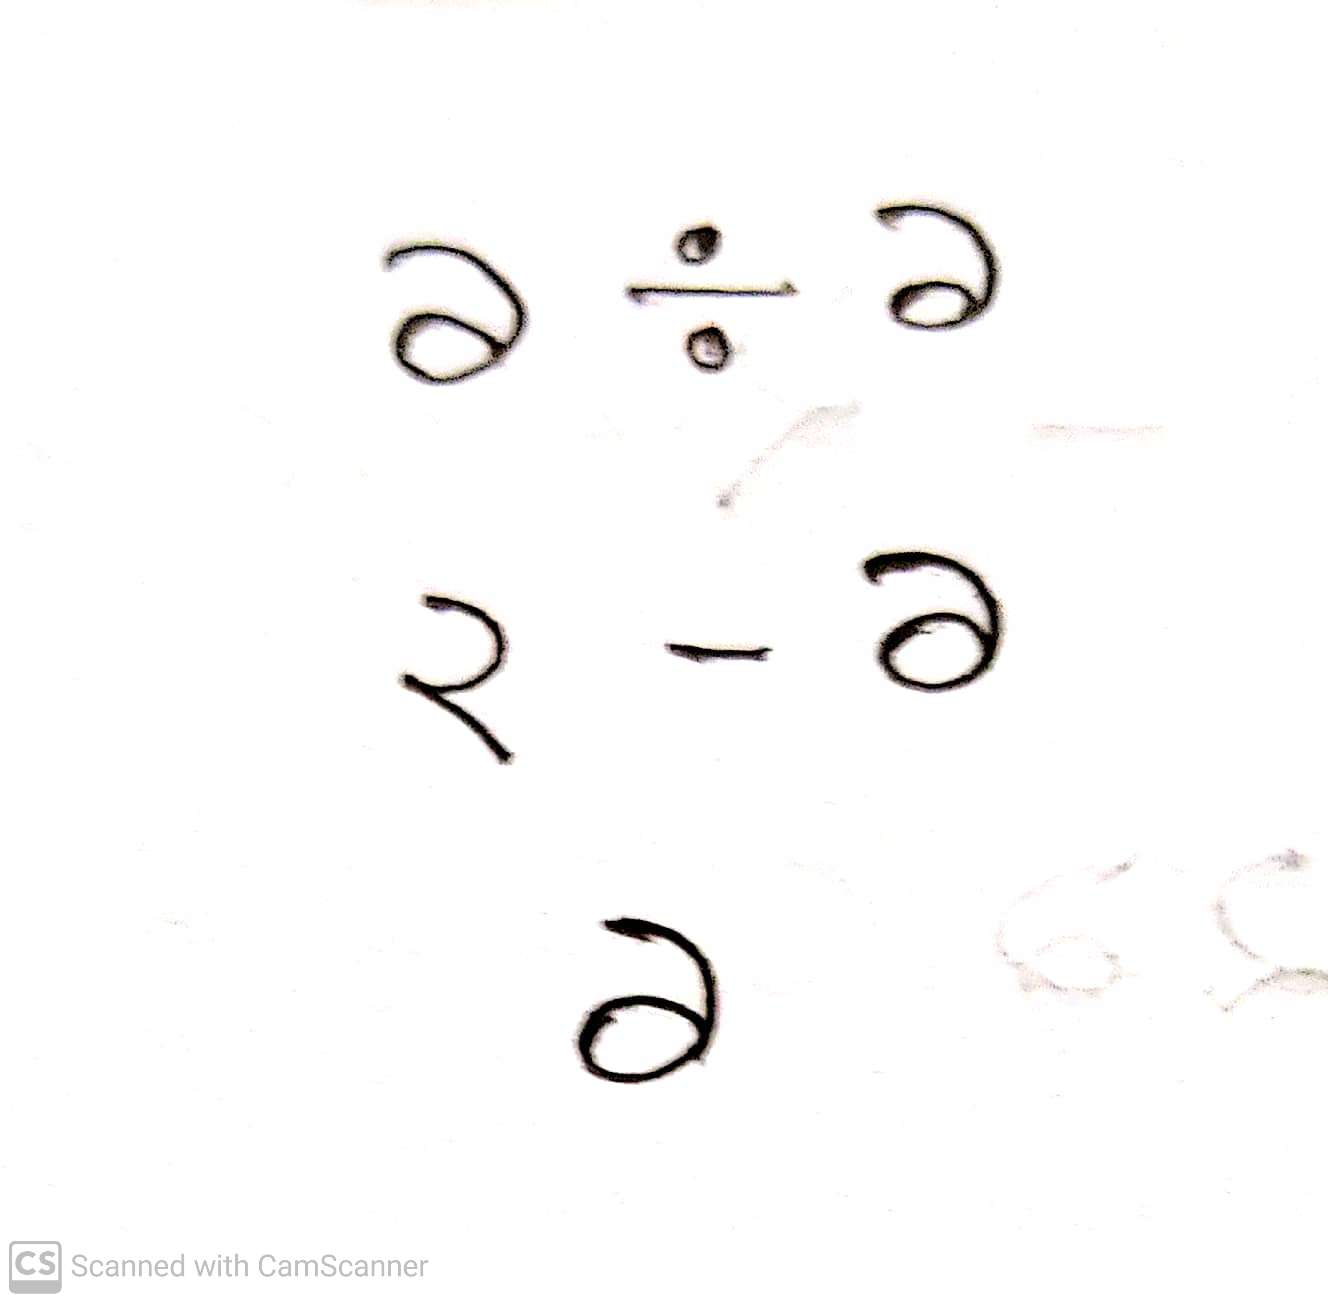 ১ ÷ ১
২ - ১
১
CS Scanned with CamScanner